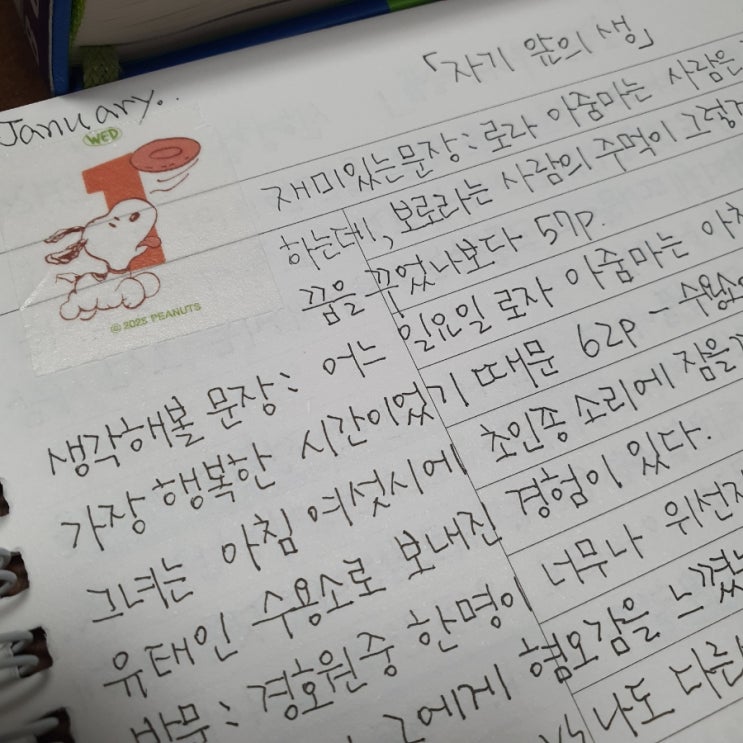 January..
「자기 앞의 생」
WED
1
© 2025 PEANUTS
재미있는문장: 로라 아줌마는 사람은
하는데, 보로라는 사람의 주먹이 그렇게
꿈을 꾸었나보다 57p.
생각해볼 문장: 어느 일요일 로자 아줌마는 아침
가장 행복한 시간이었기 때문 62p - 수용소
그녀는 아침 여섯시에 초인종 소리에 잠을
유태인 수용소로 보내진 경험이 있다.
반문: 경호원중 한명이 너무나 위선자
그에게 혐오감을 느꼈
나도 다른